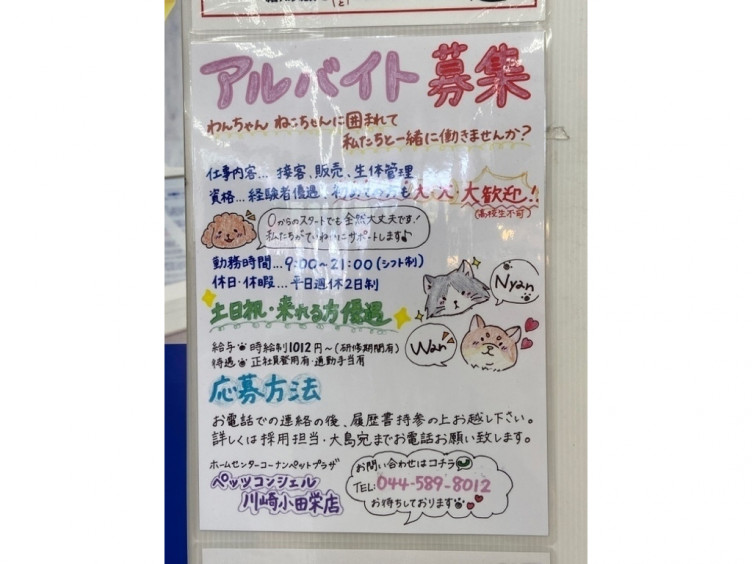 アルバイト募集
わんちゃん ねこちゃんに囲まれて
私たちと一緒に働きませんか?
仕事内容... 接客、販売、生体管理
資格...経験者優遇、初めての方も 大・大・大歓迎!!
(高校生不可)
0からのスタートでも全然大丈夫です!
私たちがていねいにサポートします♪
勤務時間...9:00~21:00(シフト制)
休日・休暇...平日週休2日制
土日祝・来れる方優遇
Nyan
Wan
給与 時給制1012円~(研修期間有)
待遇 正社員登用有・通勤手当有
応募方法
お電話での連絡の後、履歴書持参の上お越し下さい。
詳しくは採用担当・大島宛までお電話お願い致します。
ホームセンターコーナンペットプラザ
ペッツコンシェル
川崎小田栄店
お問い合わせはコチラ
TEL:044-589-8012
お待ちしております